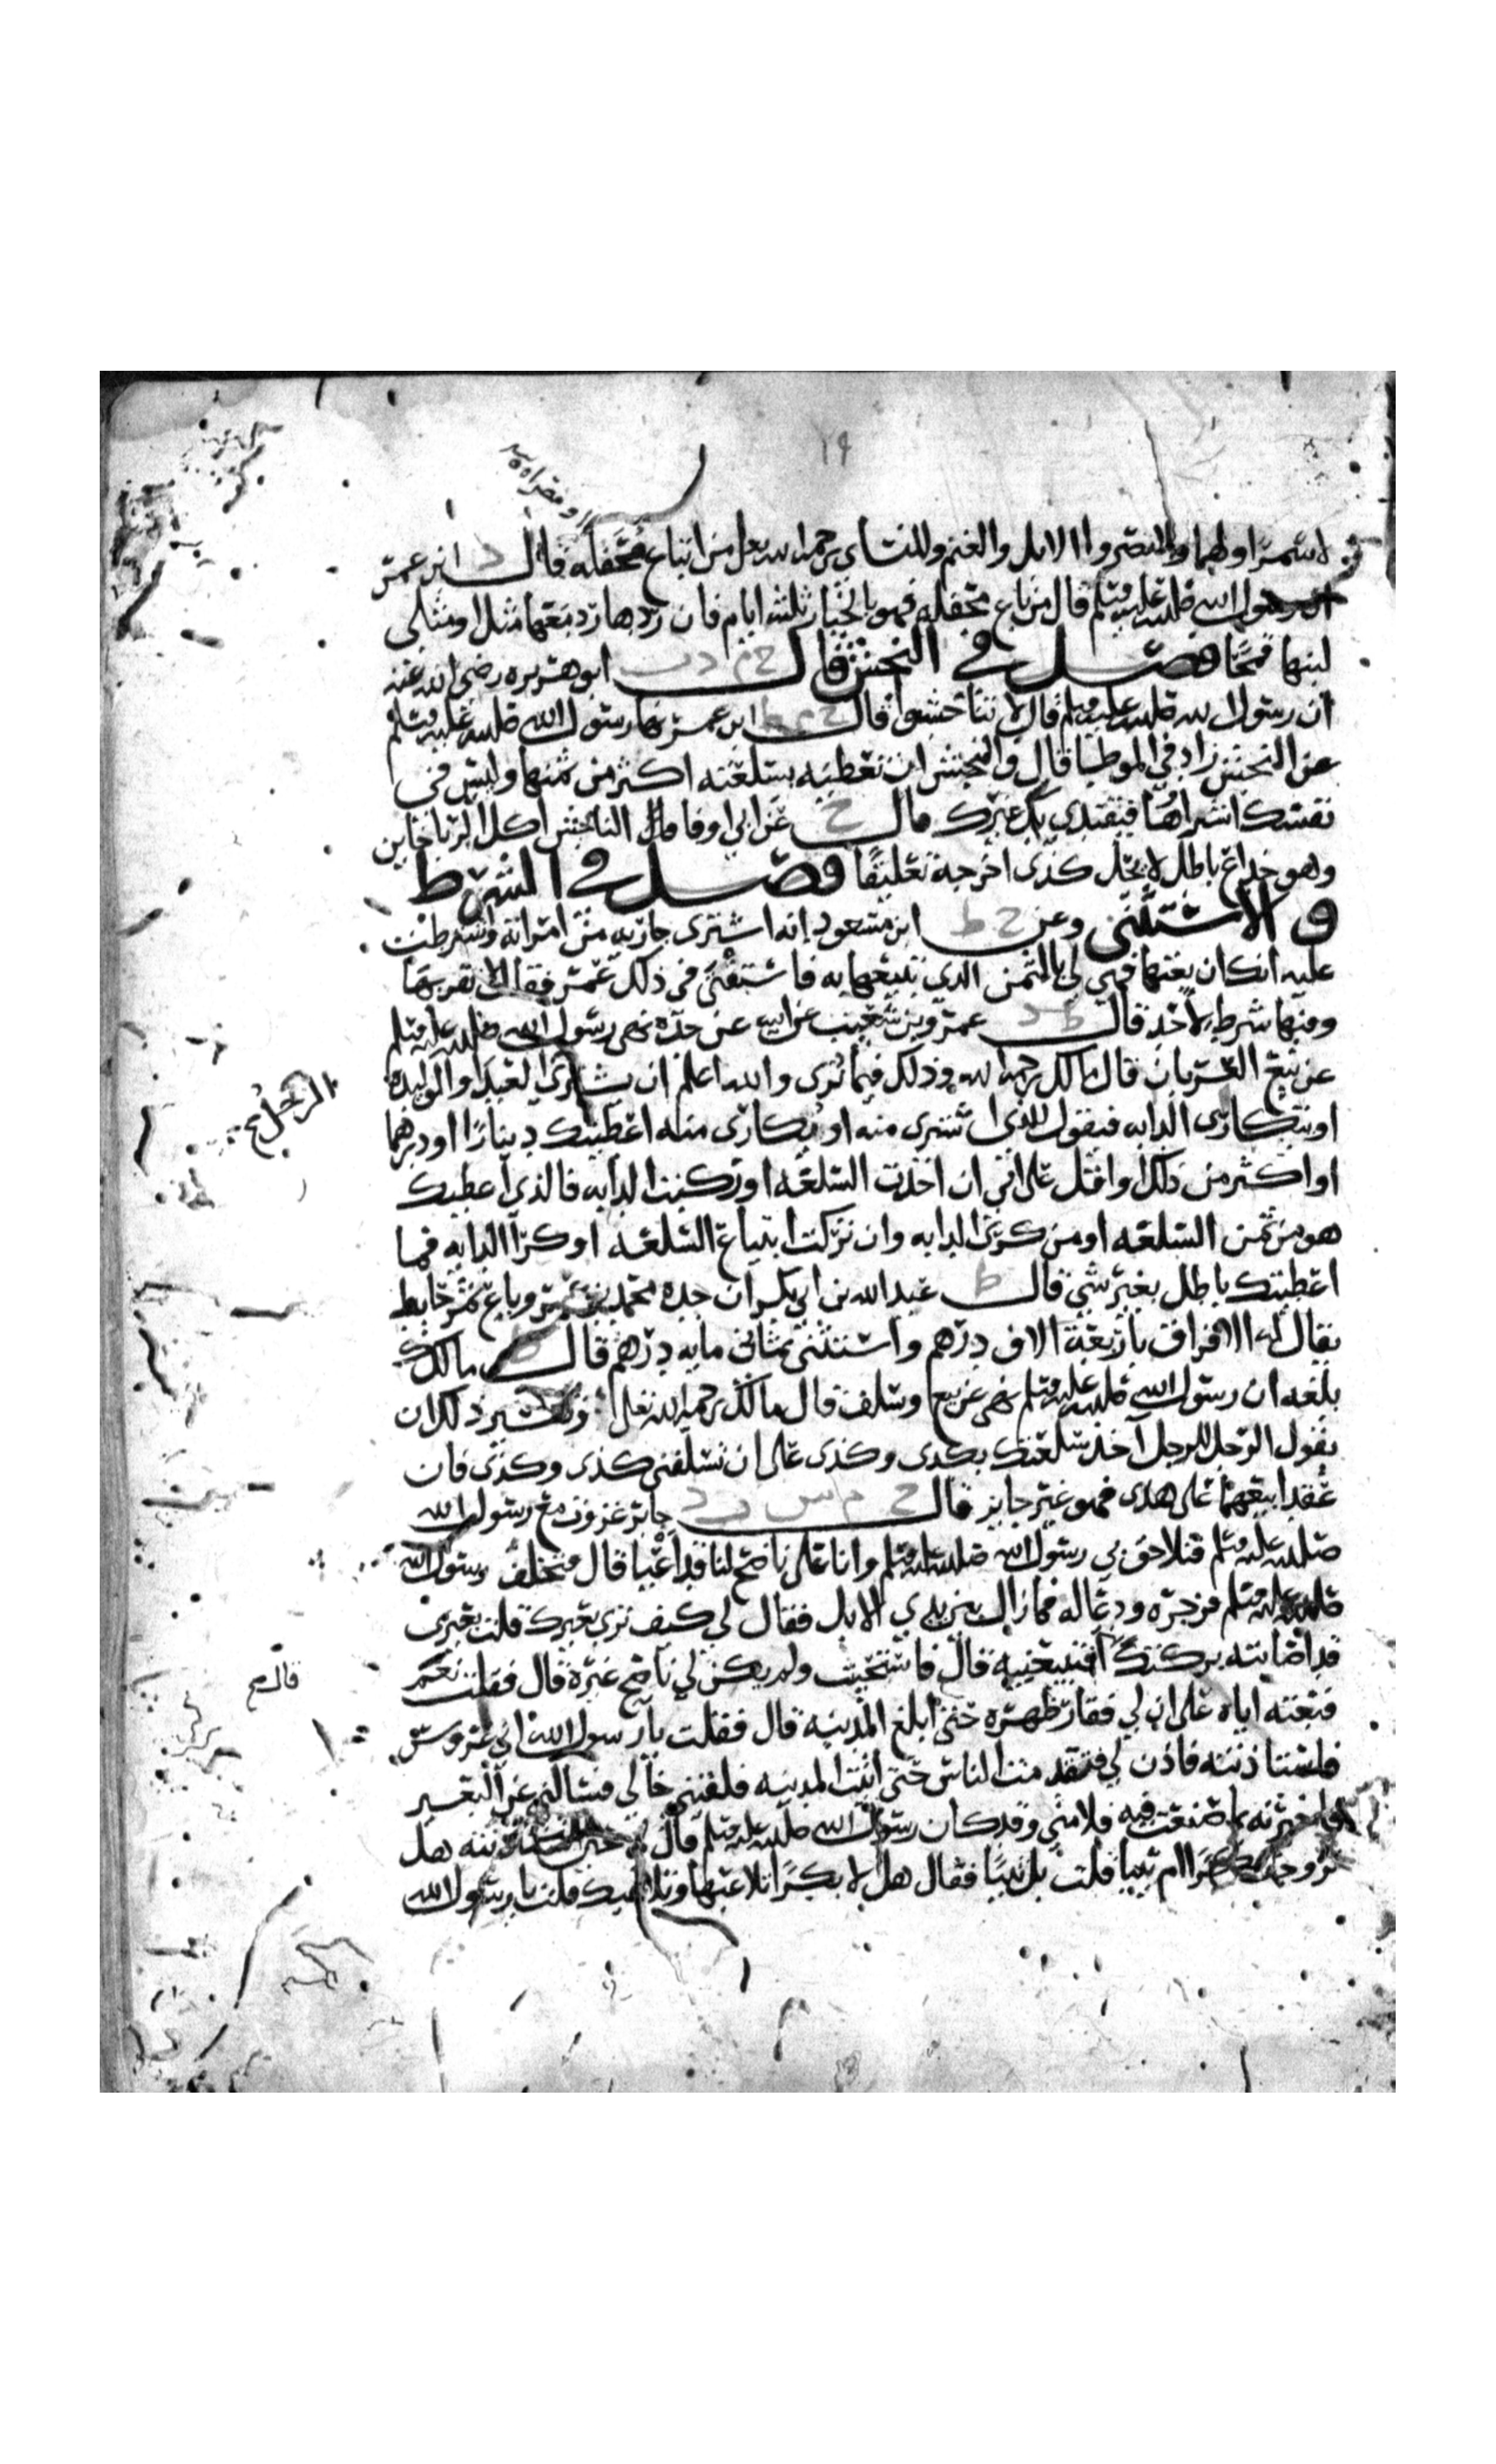 ١٩
او مصراه
لا سمرا ولهما ولا تصروا الابل والغنم وللنساى رحمه الله تعلى من ابتاع محفله قال د ابن عمر
ان رسول الله صلى الله عليه وسلم قال من باع محفله فهو بالخيار ثلثه ايام فان ردها رد معها مثل او مثلى
لبنها قمحا فصل في النجش قال خ م د ت ابو هريره رضى الله عنه
ان رسول الله صلى الله عليه وسلم قال لا تناجشوا قال خ م ط ابن عمر نها رسول الله صلى الله عليه وسلم
عن النجش زاد في الموطا قال والنجش ان تعطيه بسلعته اكثر من ثمنها وليس في
نفسك اشراها فيقتدي بك غيرك قال خ عن ابي اوفا قال الناجش اكل الربا خاين
وهو خداع باطل لا يحل كذى اخرجه تعليقا فصل في الشرط
و الاستثنى وعن خ ط ابن مسعود انه اشترى جاريه من امراته واشترطت
عليه انك ان بعتها فهي لي بالثمن الذي تبيعها به فاستفتى في ذلك عمر فقال لا تقربها
وفيها شرط لاحد قال ط د عمرو بن شعيب عن ابيه عن جده نهى رسول الله صلى الله عليه وسلم
عن بيع العربان قال مالك رحمه الله وذلك فيما نرى والله اعلم ان يشترى العبد او الوليده
الرجل صح
او يتكارى الدابه فيقول للذي اشترى منه او تكارى منه اعطيتك دينارا او درهما
او اكثر من ذلك او اقل على اني ان اخذت السلعه او ركبت الدابه فالذي اعطيك
هو من ثمن السلعه او من كرى الدابه وان تركت ابتياع السلعه او كرا الدابه فما
اعطيتك باطل بغير شي قال ط عبد الله بن ابي بكر ان جده محمد بن عمرو باع ثمر حايط
يقال له الافراق باربعة الاف درهم واستثنى بثماني مايه درهم قال ط مالك
بلغه ان رسول الله صلى الله عليه وسلم نهى عن بيع وسلف قال مالك رحمه الله تعلى وتفسير ذلك ان
يقول الرجل للرجل آخذ سلعتك بكذى وكذى على ان تسلفني كذى وكذى فان
عقدا بيعهما على هذى فهو غير جايز قال خ م س ت د جابر غزوت مع رسول الله
صلى الله عليه وسلم فتلاحق بي رسول الله صلى الله عليه وسلم وانا على ناضح لنا قد اعيا قال فتخلف رسول الله
صلى الله عليه وسلم فزجره ودعا له فما زال بين يدي الابل فقال لي كيف ترى بعيرك قلت بخير
قد اصابته بركتك افتبيعنيه قال فاستحيت ولم يكن لي ناضح غيره قال فقلت نعم
قال صح
فبعته اياه على ان لي فقار ظهره حتى ابلغ المدينه قال فقلت يا رسول الله اني عروس
فاستاذنته فاذن لي فتقدمت الناس حتى اتيت المدينه فلقيني خالي فسالني عن البعير
فاخبرته بما صنعت فيه فلامني وقد كان رسول الله صلى الله عليه وسلم قال لي حين استاذنته هل
تزوجت بكرا ام ثيبا قلت بل ثيبا فقال هل لا بكرا تلاعبها وتلاعبك قلت يا رسول الله